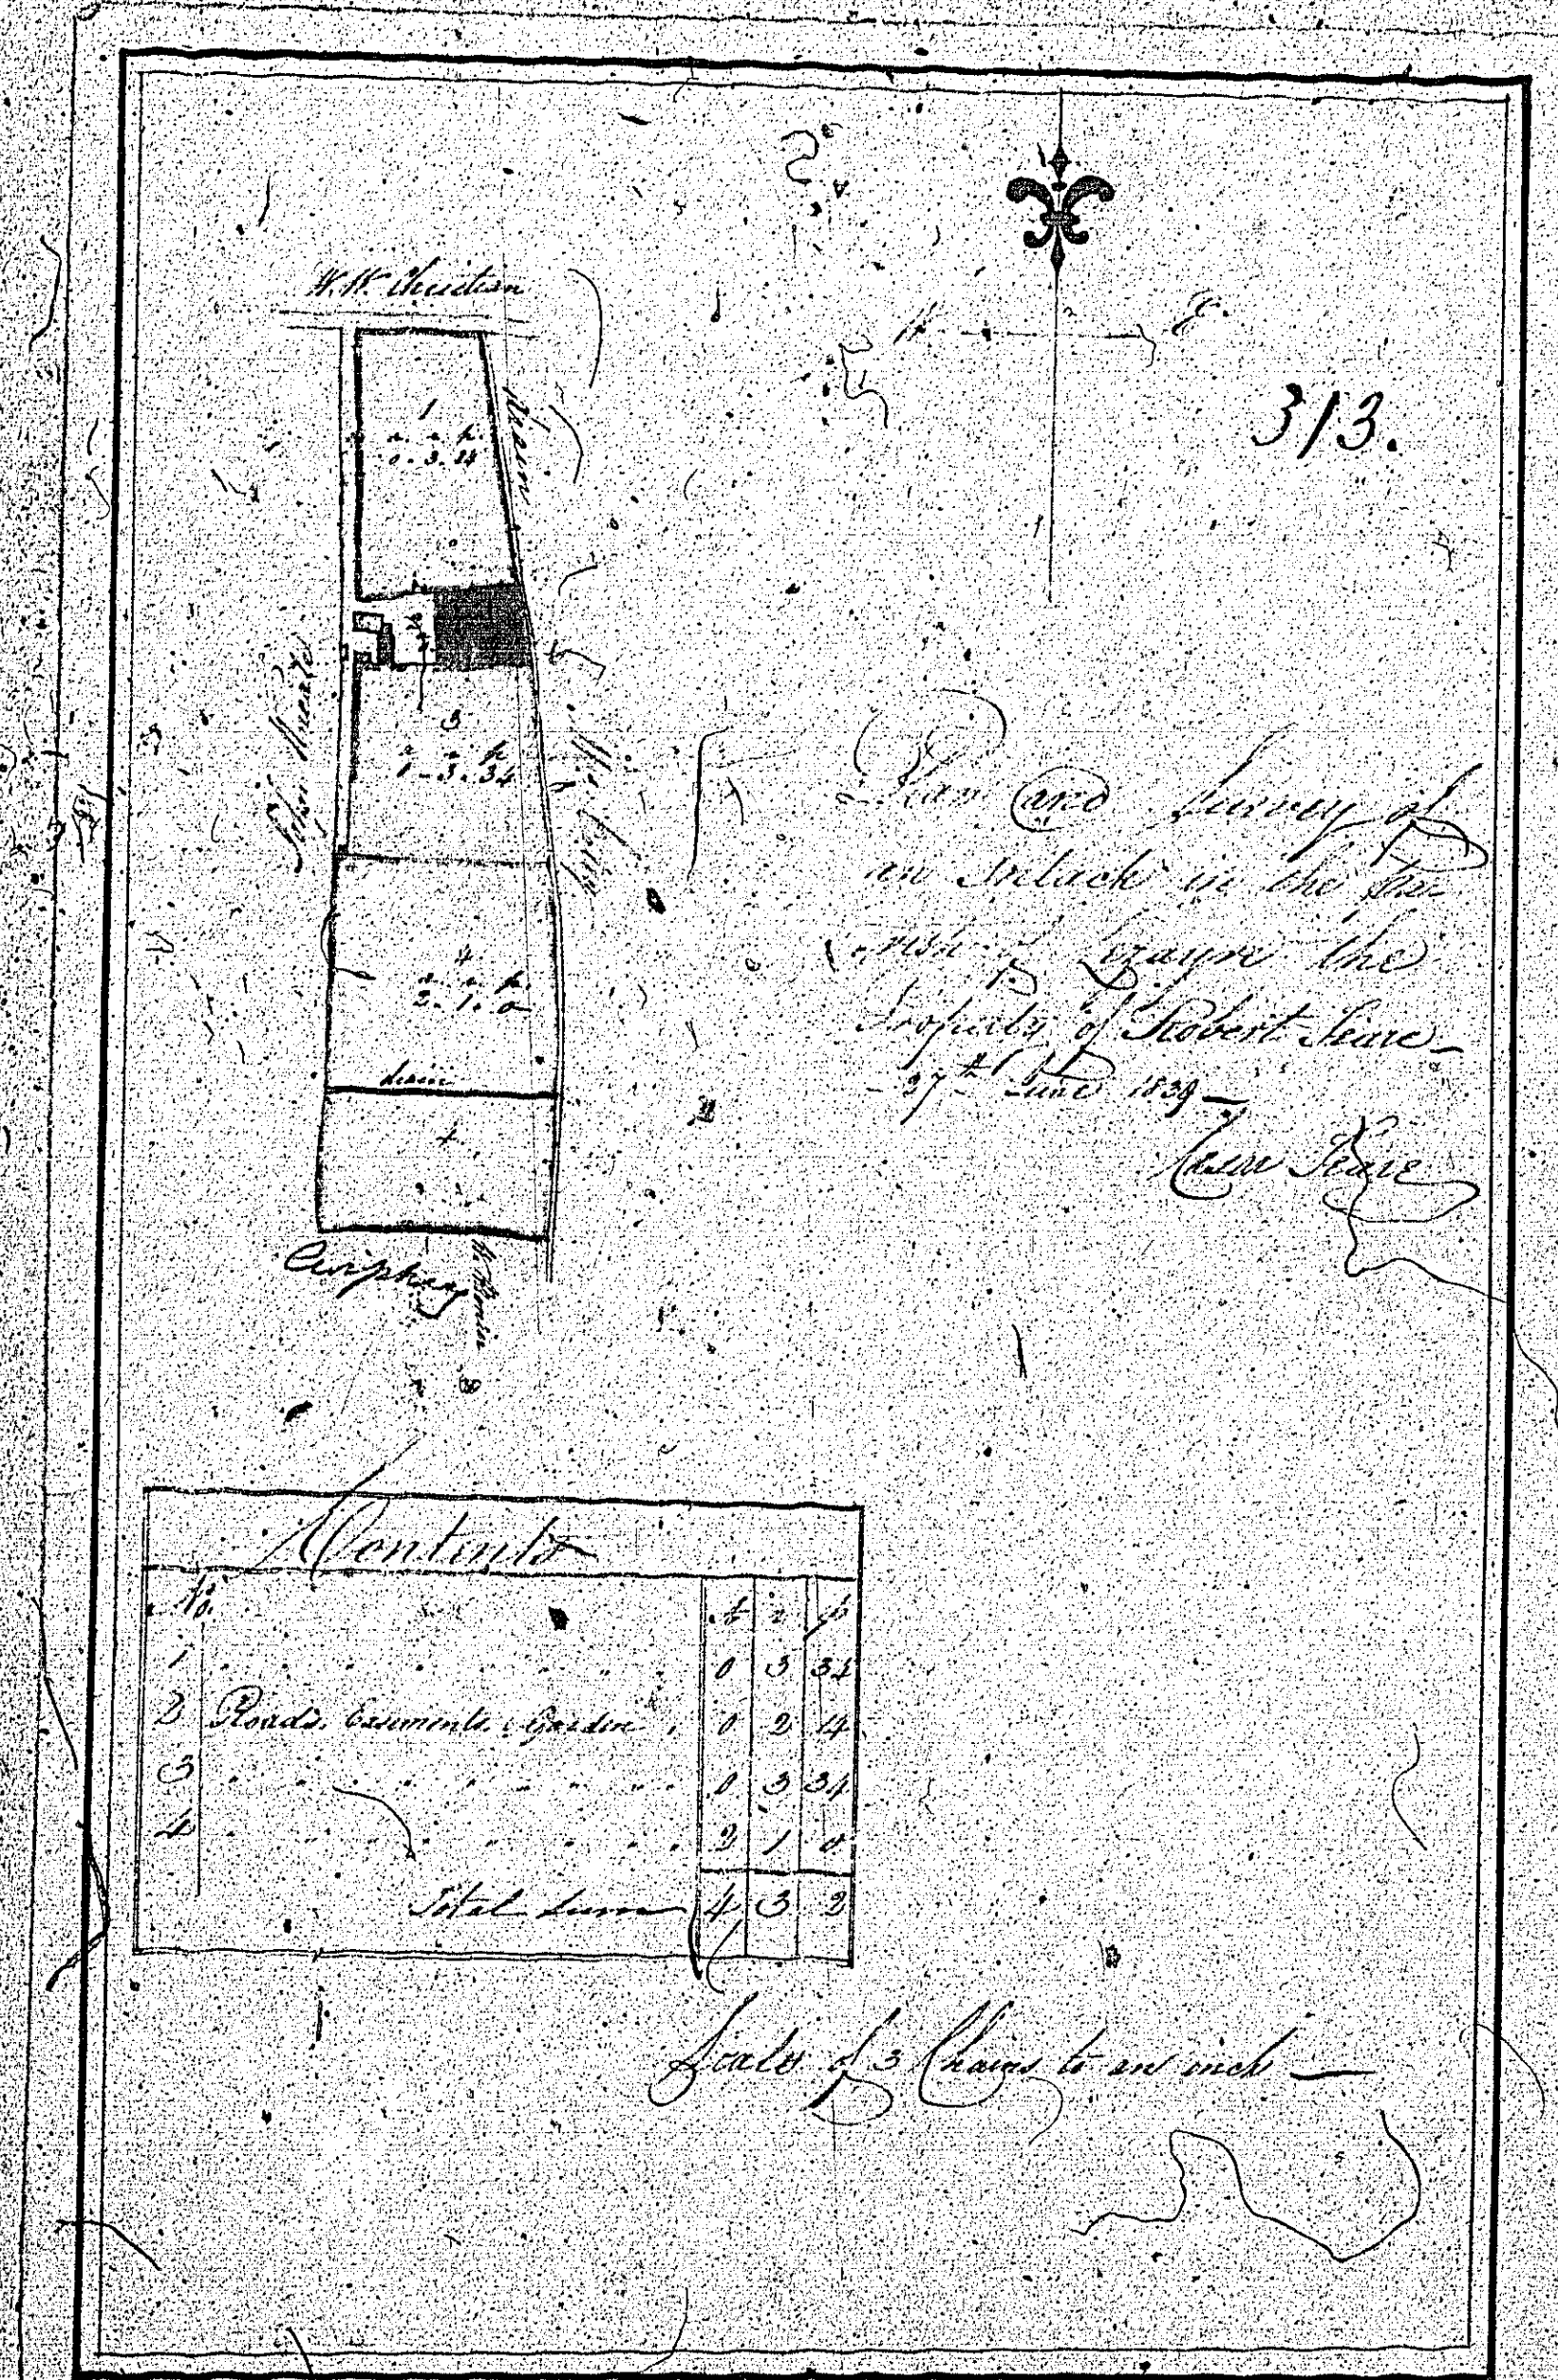 W. W. Christian
W E.
313.
1
a r p
0. 3. 34
3
a r p
0 - 3. 34
4
a r p
2. 1. 0
John
Plan and Survey of
an Intack in the Pa-
rish of Lezayre the
Property of Robert Teare
- 27th June 1839
Teare
Contents
No. a r p
1 0 3 34
2 Roads. Easements & Garden 0 2 14
3 0 3 34
4 2 1 0
Total Sum 4 3 2
Scale of 3 Chains to an inch